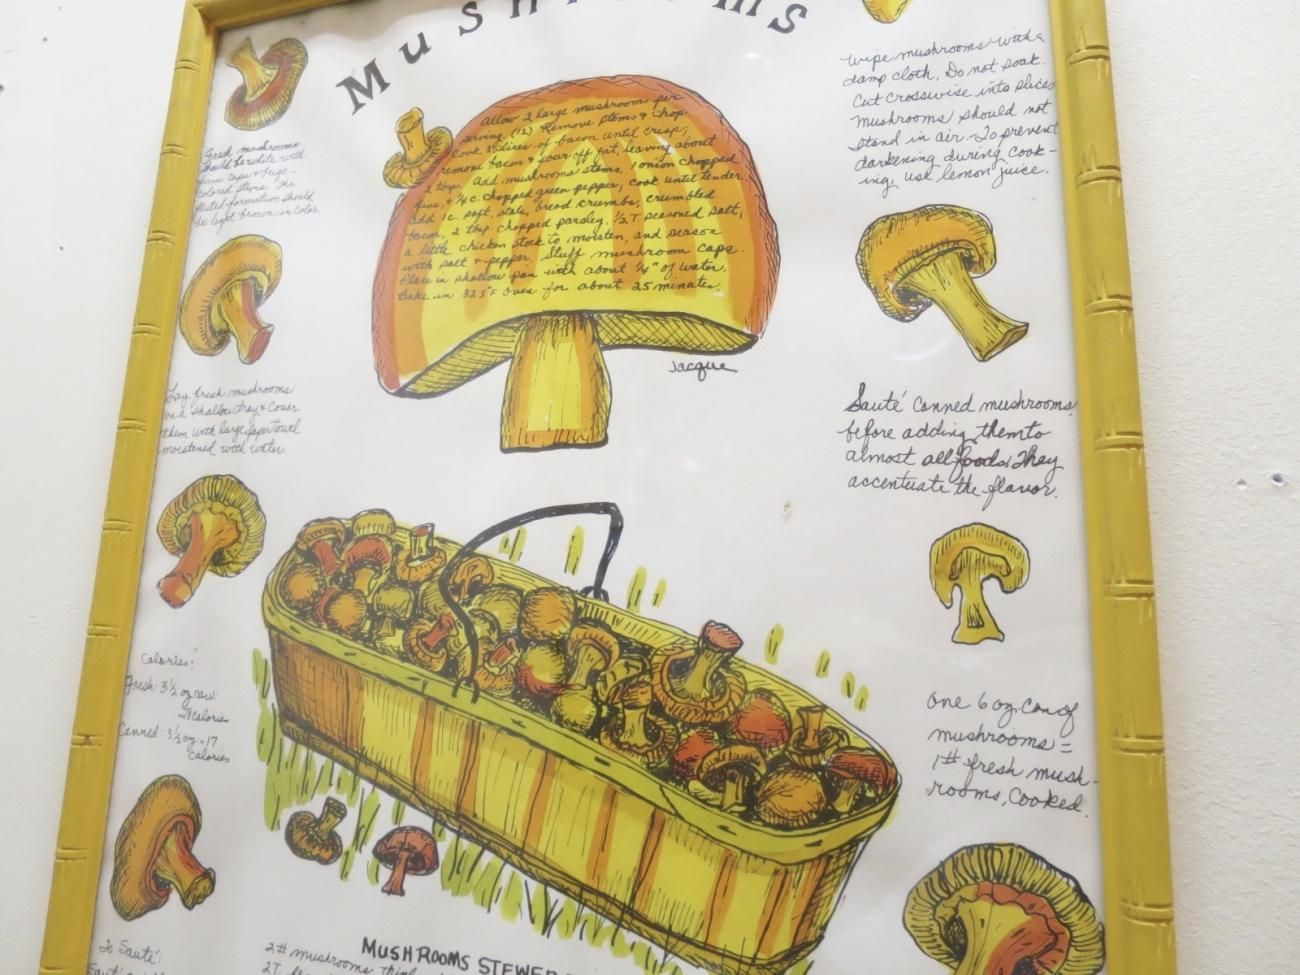 Mushrooms
Allow 2 large mushrooms per
serving. (12) Remove stems & chop.
Cook 3 slices of bacon until crisp;
remove bacon & pour off fat, leaving about
2 tbsp. Add mushrooms stems, 1 onion chopped
fine, & 1/4 c. chopped green pepper; cook until tender.
Add 1c. soft, stale, bread crumbs, crumbled
bacon, 2 tbsp. chopped parsley, 1/2 T. seasoned salt,
a little chicken stock to moisten, and season
with salt & pepper. Stuff mushroom caps.
Place in shallow pan with about 1/4" of water.
Bake in 325°F oven for about 25 minutes.
Jacque
Fresh mushrooms
should be white with
firm caps & beige-
colored stems. The
fluted formation should
be light brown in color.
Lay fresh mushrooms
on a shallow tray & cover
them with large paper towel
moistened with water.
Calories:
Fresh: 3 1/2 oz raw:
calories
Canned: 3 1/2 oz - 17
Calories
To Sauté:
Sauté
Wipe mushrooms with a
damp cloth. Do not soak.
Cut crosswise into slices
Mushrooms should not
stand in air. To prevent
darkening during cook-
ing, use lemon juice.
Sauté canned mushrooms
before adding them to
almost all foods. They
accentuate the flavor.
One 6 oz. can of
mushrooms =
1# fresh mush-
rooms, cooked.
MUSHROOMS STEWED
2# mushrooms
2T.